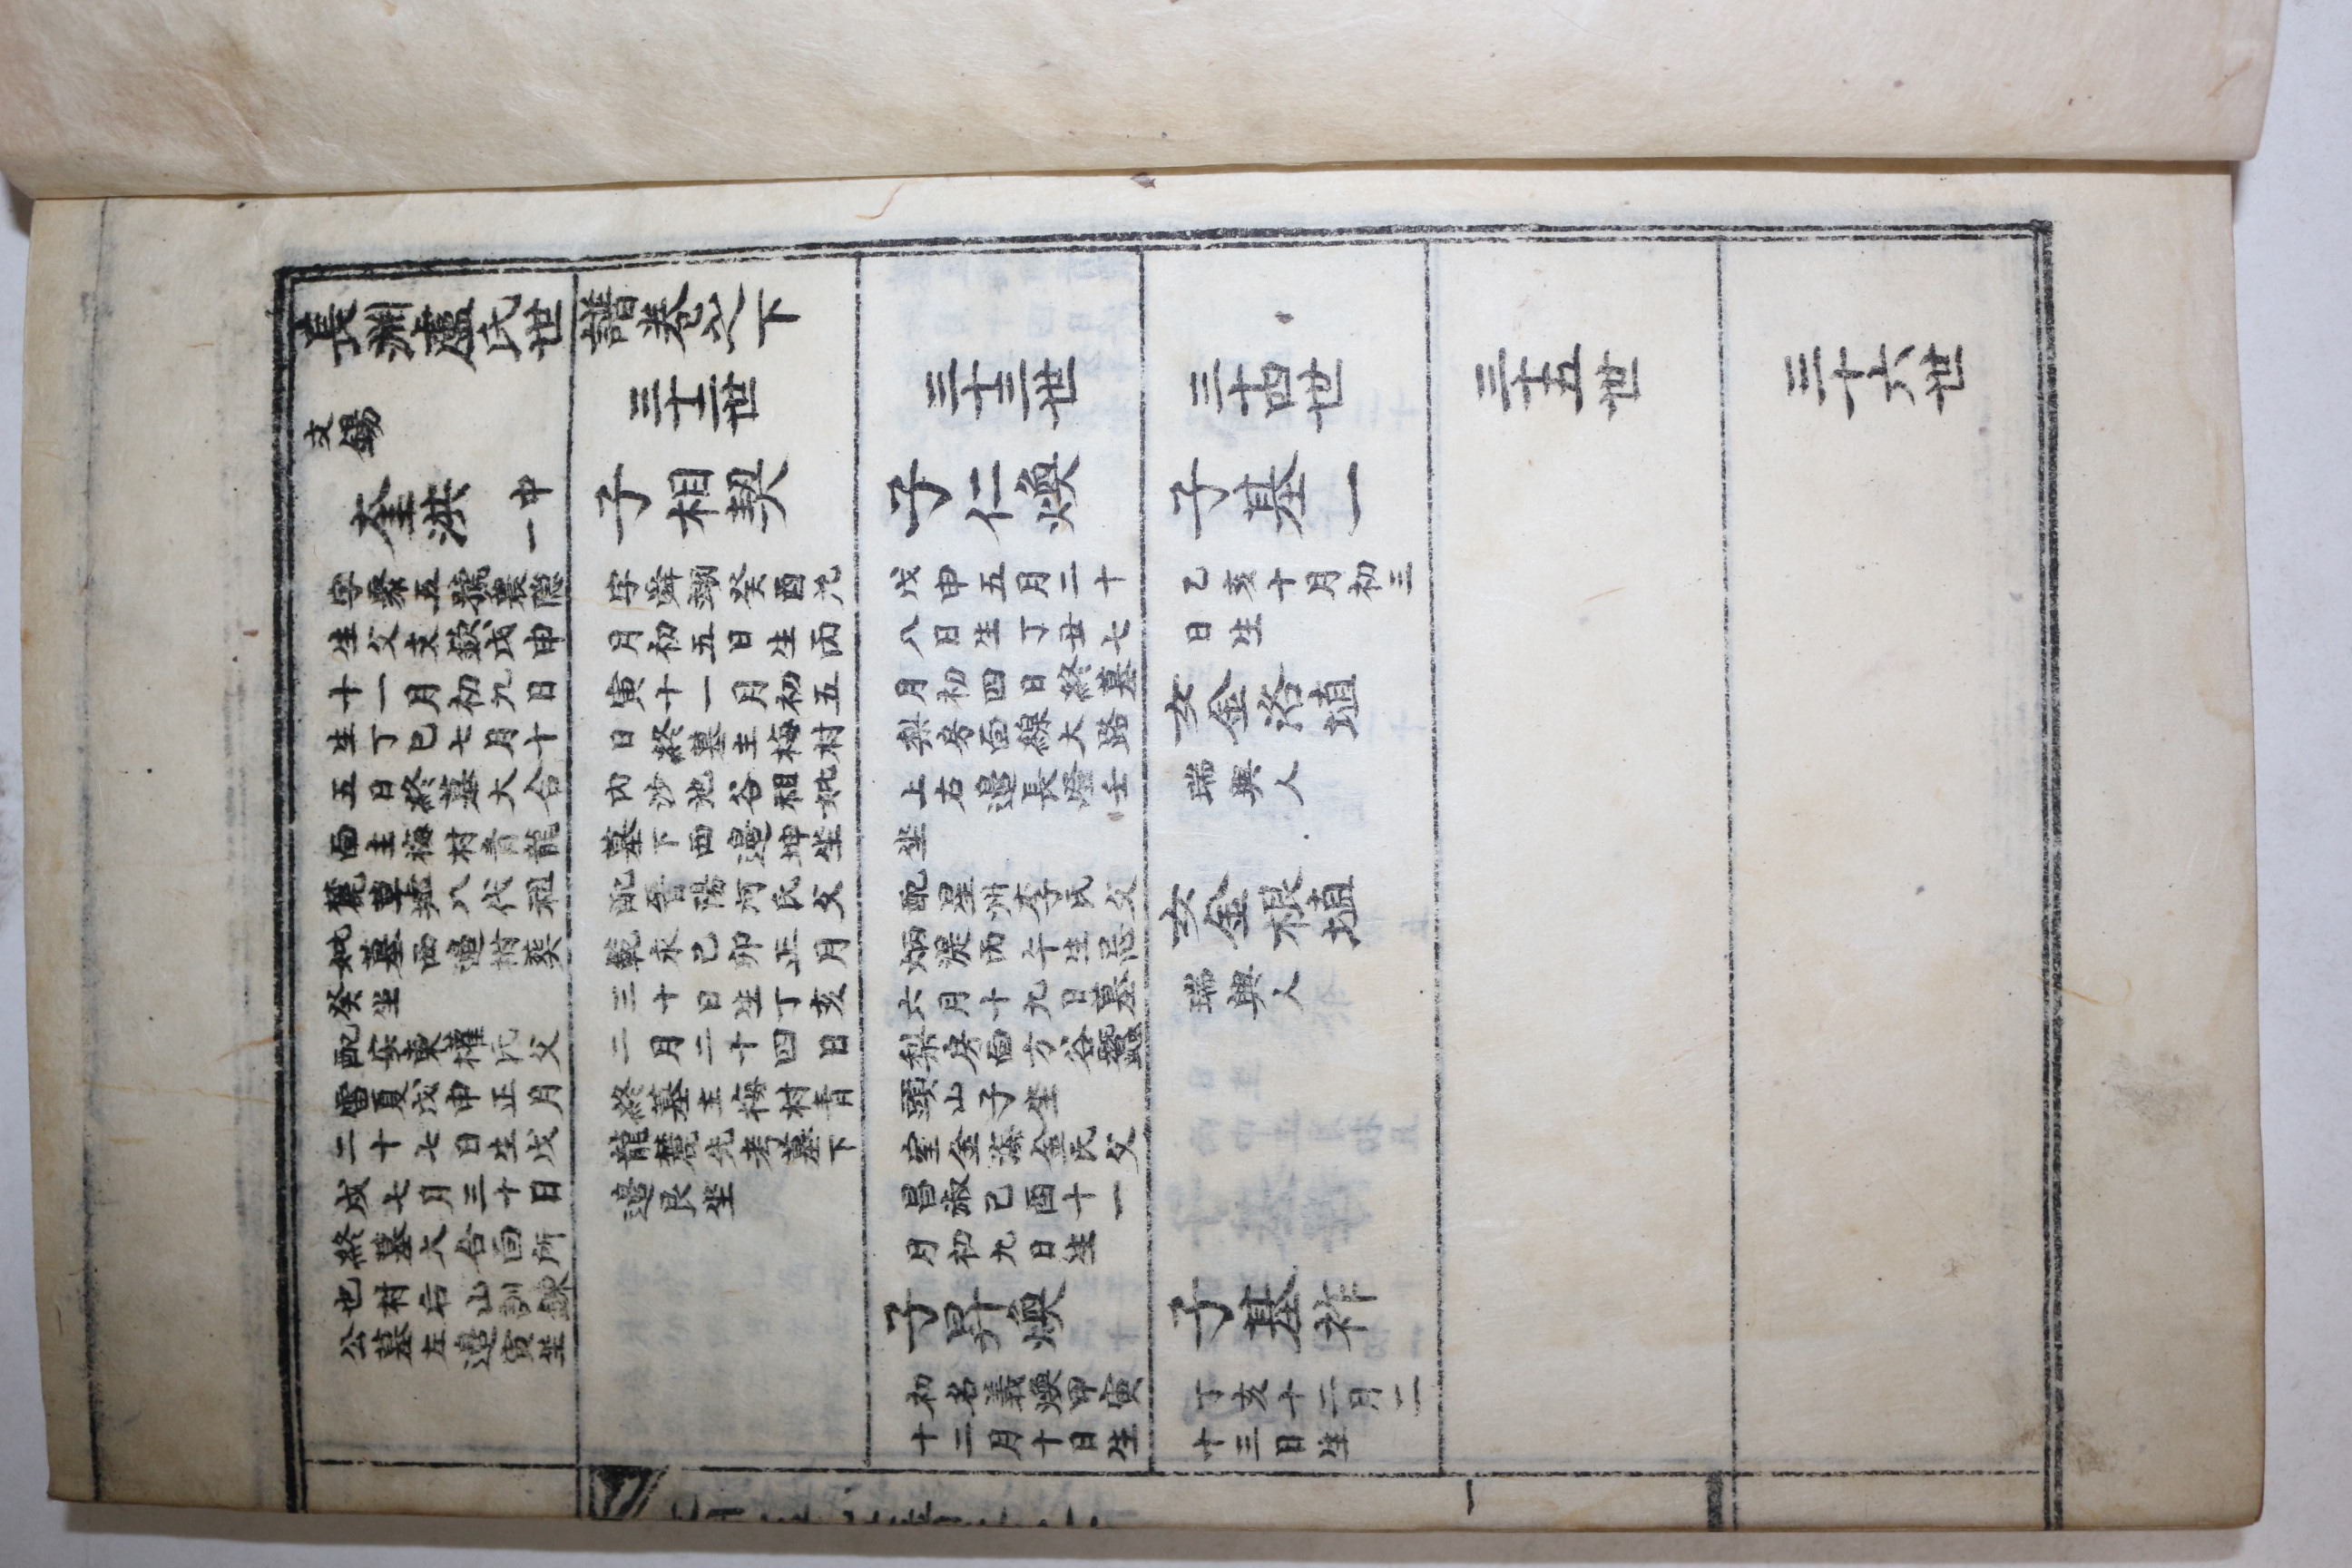 長淵盧氏世譜卷之下
文錫
奎洪
中一
字聚五號農隐
生父文欽戊申
十一月初九日
生丁巳七月十
五日終墓大合
面主梅村青龍
麓草墟八代祖
妣墓西邉祔葬
癸坐
配安東權氏父
雷夏戊申正月
二十七日生戊
戌七月三十日
終墓大合面所
也村右山訓鍊
公墓左邉寅坐
三十二世
子相契
字舜翊癸酉九
月初五日生丙
寅十一月初五
日終墓主梅村
內沙池谷祖妣
墓下西邉坤坐
配晋陽河氏父
範永己卯正月
三十日生丁亥
二月二十四日
終墓主梅村青
龍麓先考墓下
邉艮坐
三十三世
子仁煥
戊申五月二十
八日生丁丑七
月初四日終墓
梨房面線大路
上右邉長嶝壬
坐
配星州李氏父
炳湜丙午生忌
六月十九日墓
梨房面方谷蠶
頭山子坐
室金海金氏父
昌淑己酉十一
月初九日生
子昇煥
初名義煥甲寅
十二月十日生
三十四世
子基一
乙亥十月初三
日生
女金洛埴
瑞興人
女金根埴
瑞興人
子基祚
丁亥十二月二
十三日生
三十五世
三十六世
一